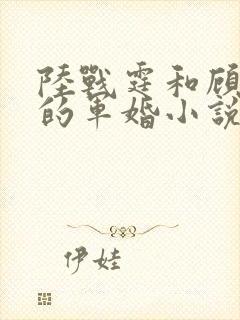 陸戰霆和顧
的軍婚小說
伊娃